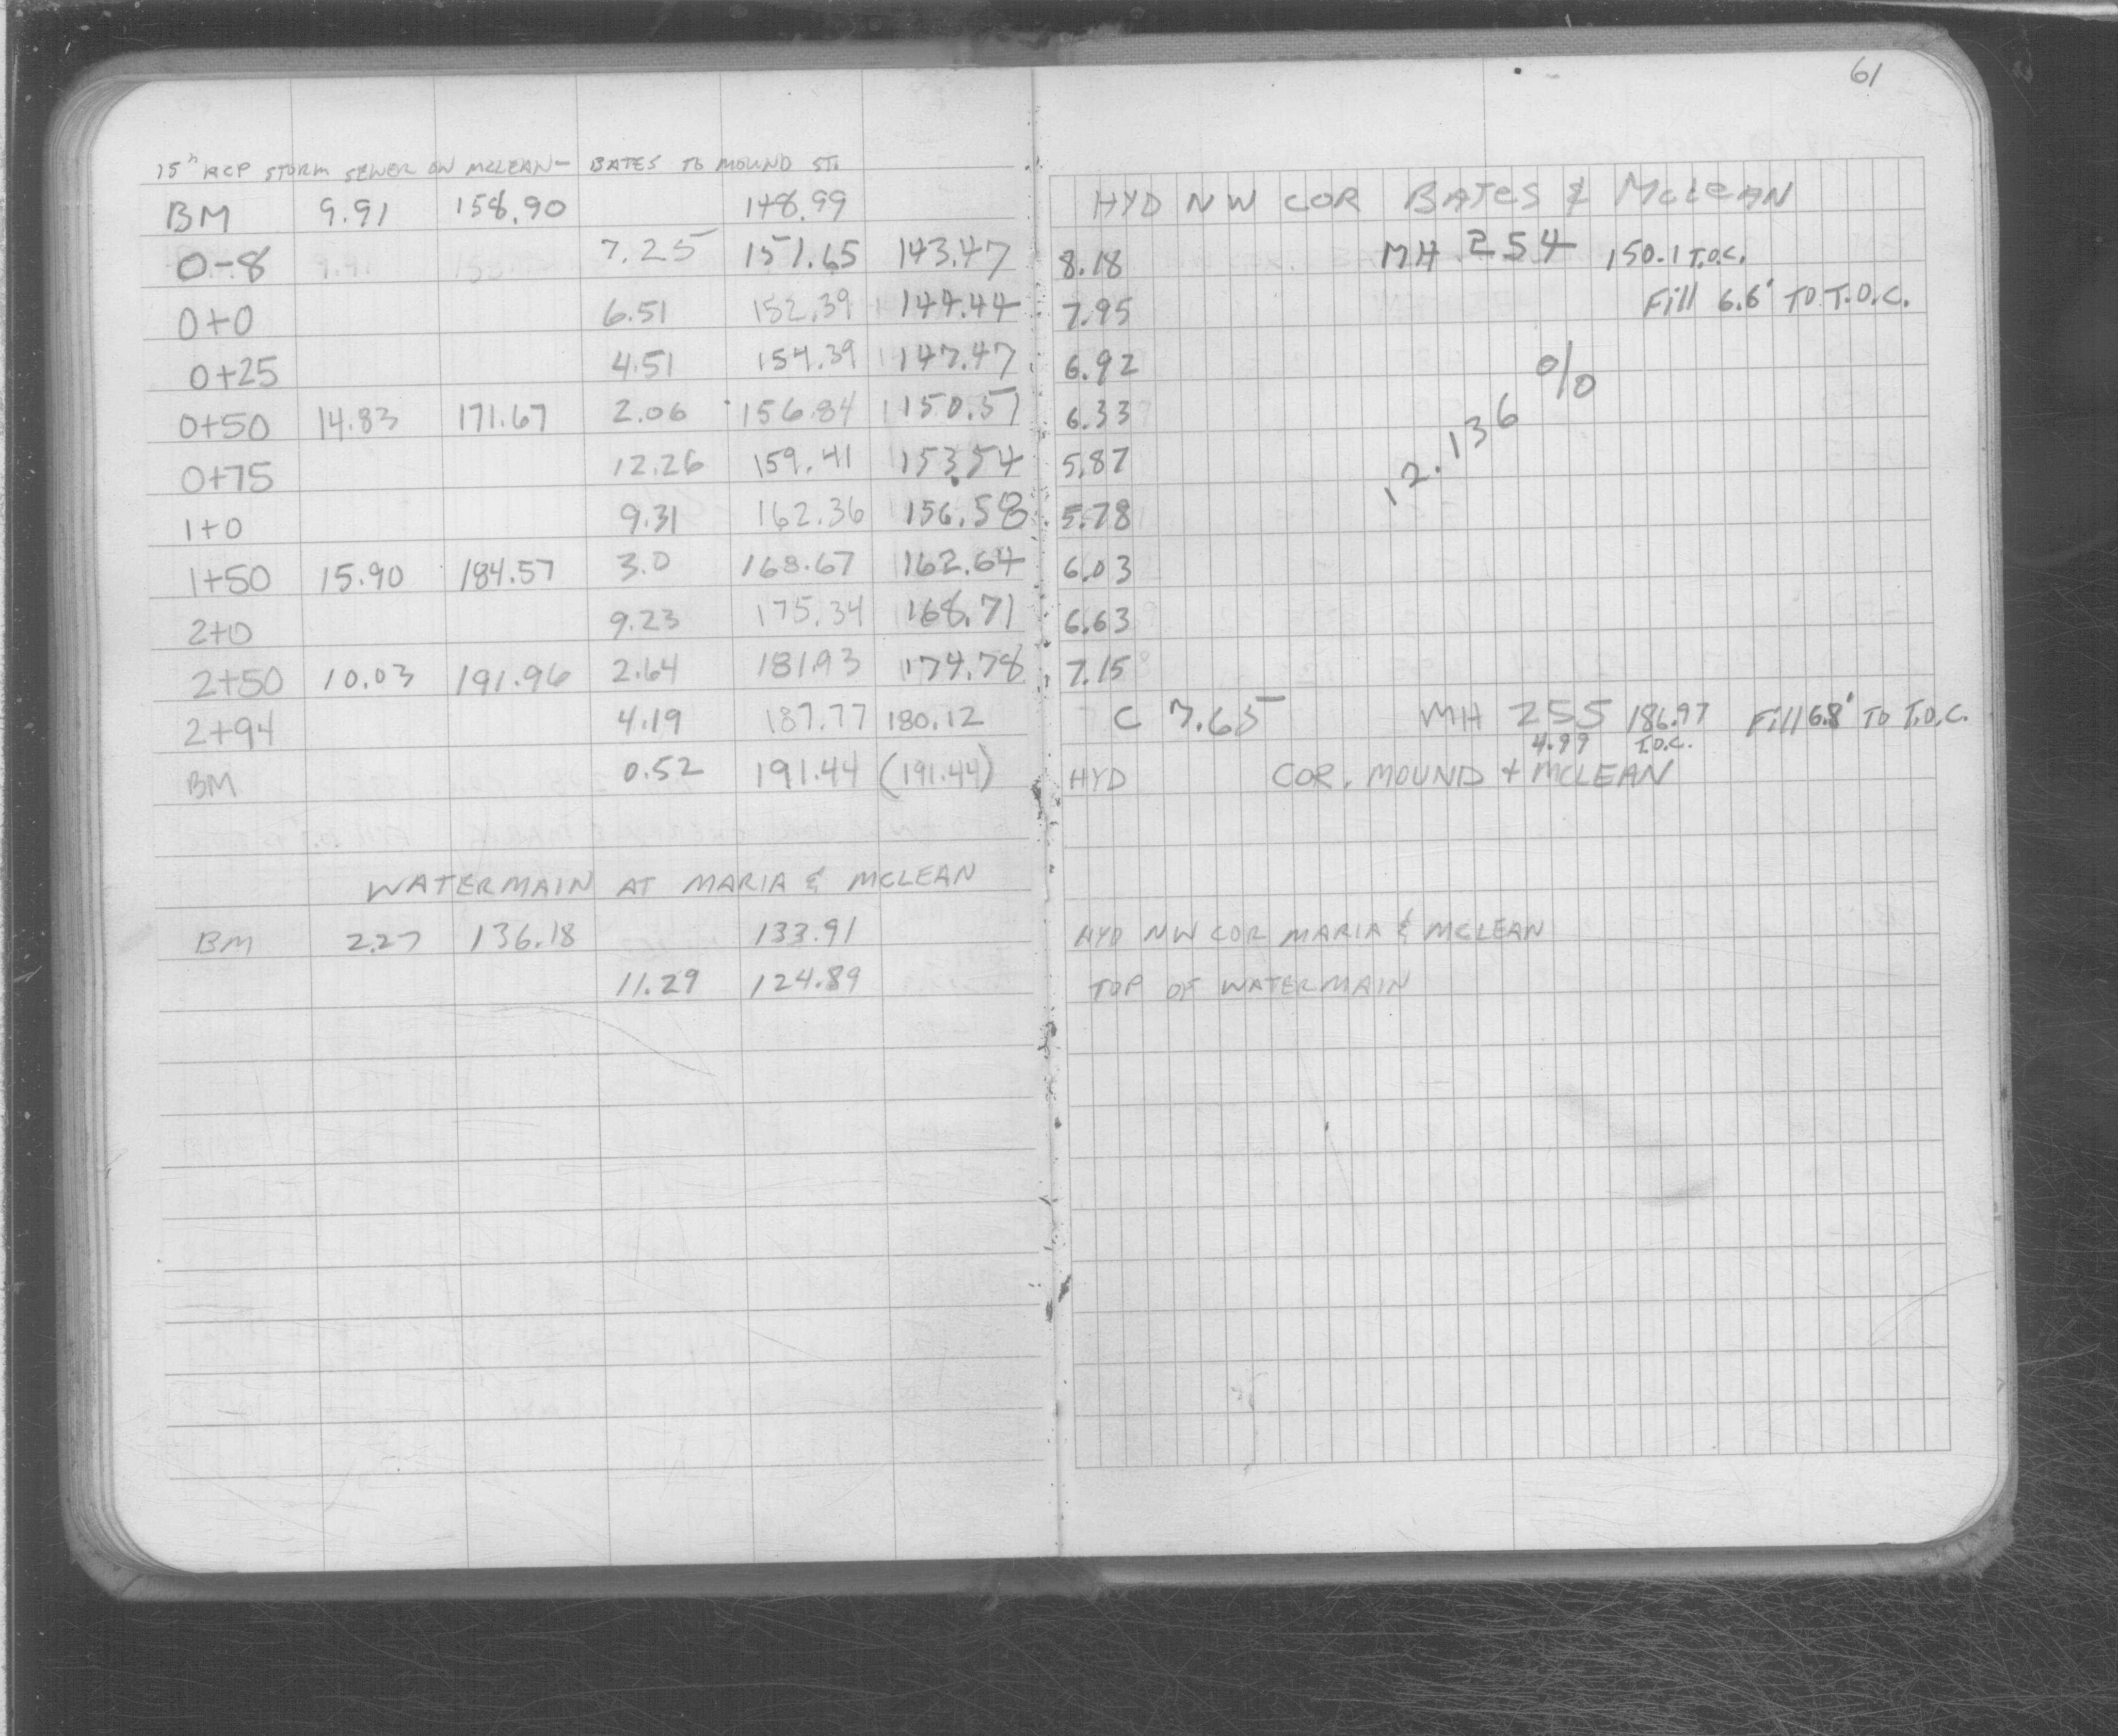 61
15" RCP STORM SEWER ON MCLEAN - BATES TO MOUND ST.
BM 9.91 158.90 148.99 HYD NW COR BATES & MCLEAN
0-8 7.25 151.65 143.47 8.18 MH 254 150.1 T.O.C.
0+0 6.51 152.39 144.44 7.95 Fill 6.6' TO T.O.C.
0+25 4.51 154.39 147.47 6.92
0+50 14.83 171.67 2.06 156.84 150.51 6.33
12.136 %
0+75 12.26 159.41 153.54 5.87
1+0 9.31 162.36 156.58 5.78
1+50 15.90 184.57 3.0 168.67 162.64 6.03
2+0 9.23 175.34 168.71 6.63
2+50 10.03 191.96 2.64 181.93 174.78 7.15
2+94 4.19 187.77 180.12 C 7.65 MH 255 186.97 Fill 6.8' TO T.O.C.
4.99 T.O.C.
BM 0.52 191.44 (191.44) HYD COR. MOUND + MCLEAN
WATERMAIN AT MARIA & MCLEAN
BM 2.27 136.18 133.91 HYD NW COR MARIA & MCLEAN
11.29 124.89 TOP OF WATERMAIN